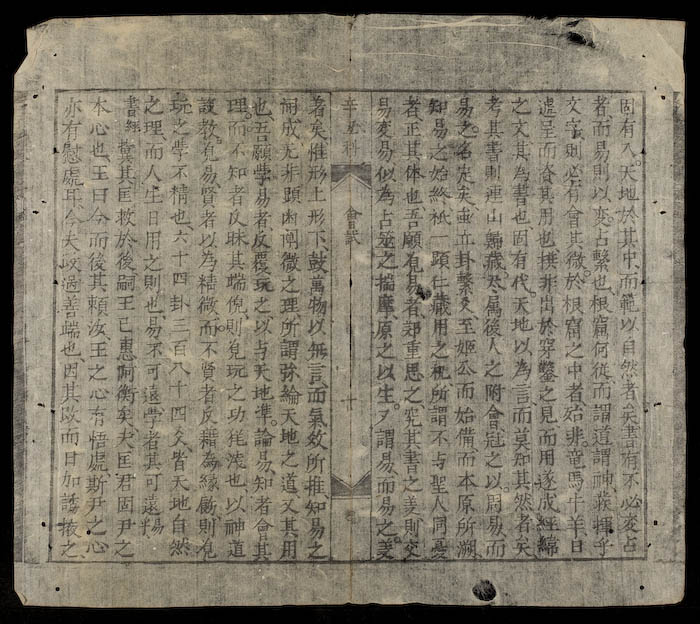 固有人。天地於其中、而範以自然者矣書有不必变占
者、而易則以変占繫也、根窟何従而謂道謂神
文字、則必有會其微於根窟之中者、始非竜馬牛羊日
之見、而用遂成經緯
之文、其為書也固有代。天地以為言、而莫知其然者矣、
考其書則連山歸藏尽属後人之附會、冠之以周易、而
易之名定矣、垂立卦繫爻、至姬公而始備、而本原所溯
知易之始終、祗一顕仁藏用之机、所謂不与聖人同憂
者正其体也、吾願見易者、重思之、究其書之義則交
易変易似為占筮之揣摩、原之以生々謂易、而易之義
辛丑科
會試
十
著矣、惟形上形下、鼓萬物以無言、而氣效所推、知易之
成无非顕幽闡微之理、所謂弥綸天地之道、又其用
也、吾願学易者、反覆玩之、以与天地準。論易知者會其
理。而不知者反昧其端倪、則見玩之功浅也、以神道
設教。見易賢者以為精微。而不賢者反為緣飭、則見
玩之学不精也、六十四卦三百八十四爻、皆天地自然
之理、而人生日用之則也、易不可遠、学者其可遠
書經
冀其匡救於後、嗣王已惠阿衡矣、夫匡君固尹之
本心也、王曰今而後其頼汝、王之心有悟處、斯尹之心
亦有慰處耳、今夫改過善端也、因其改而日加誘掖之